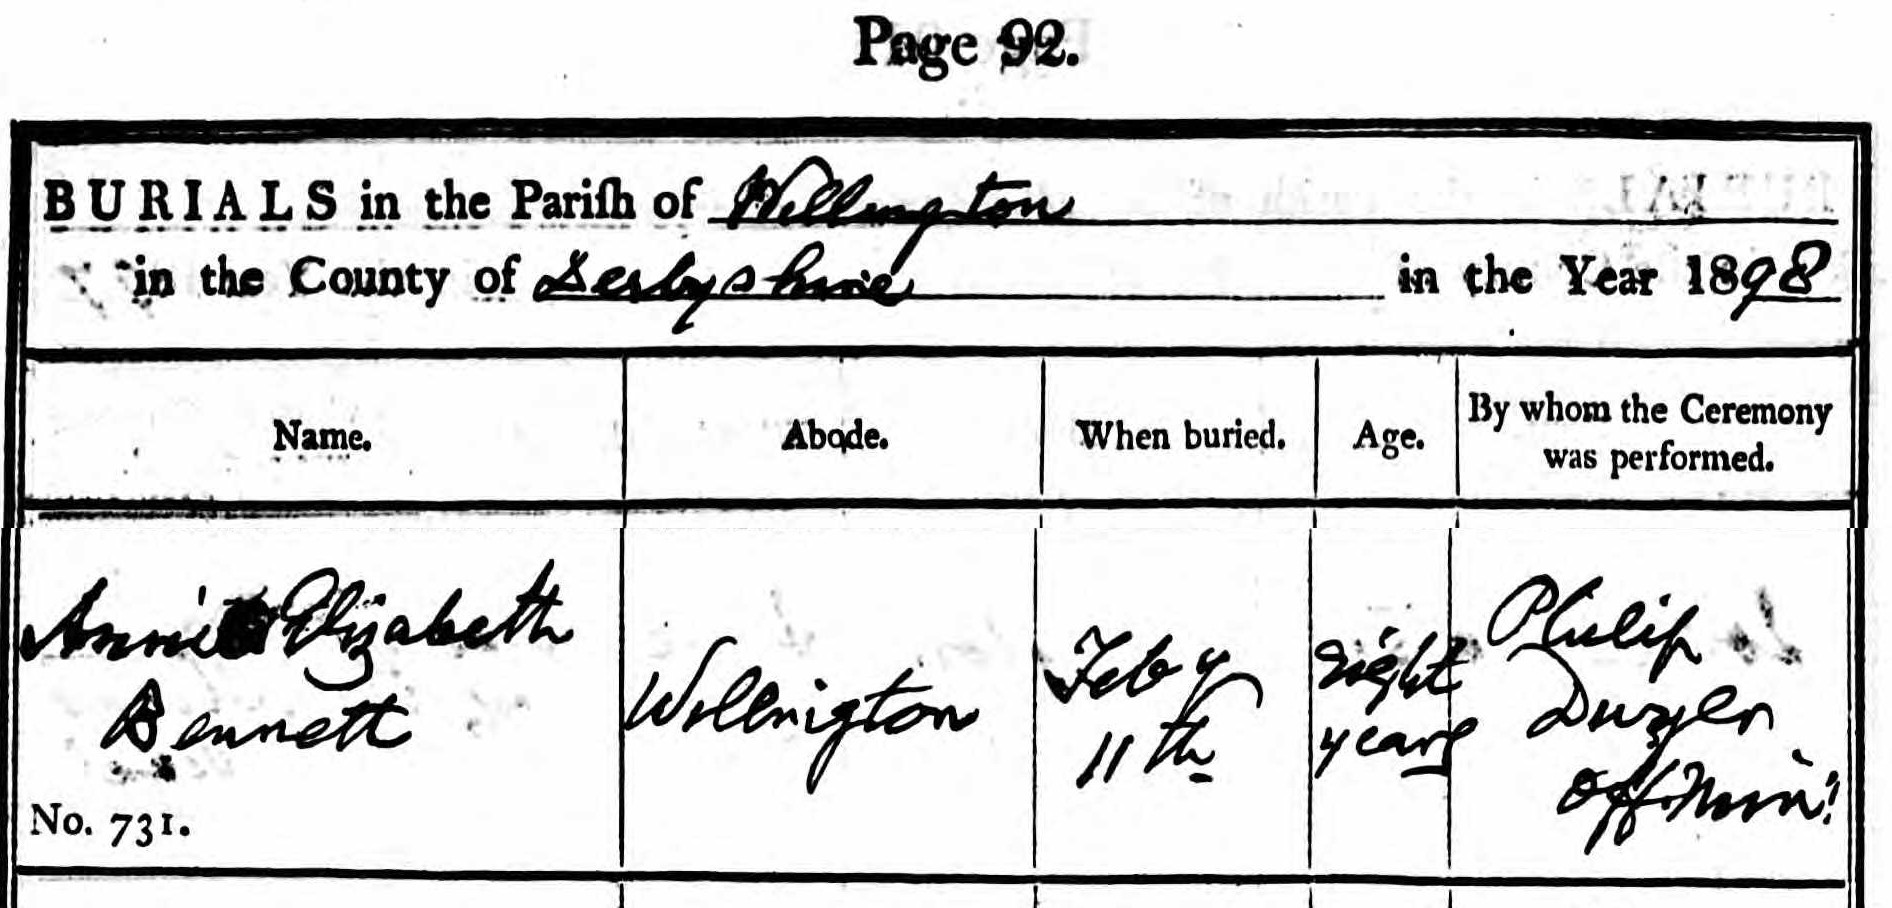 Page 92.
BURIALS in the Pariſh of Willington
in the County of Derbyshire in the Year 1898
Name. Abode. When buried. Age. By whom the Ceremony was performed.
Annie Elizabeth
Bennett
No. 731.
Willington
Feby
11th
Eight
years
Philip
Dwyer
Off. Min.